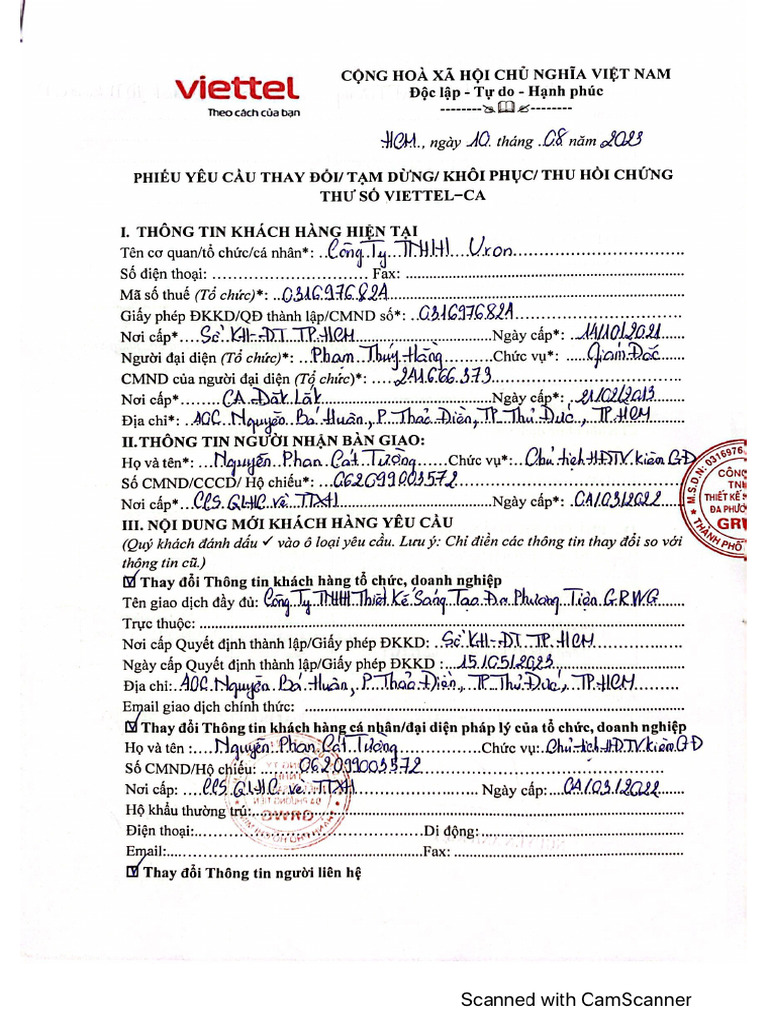 viettel
Theo cách của bạn
CỘNG HOÀ XÃ HỘI CHỦ NGHĨA VIỆT NAM
Độc lập - Tự do - Hạnh phúc
HCM., ngày 10. tháng .08 năm 2023
PHIẾU YÊU CẦU THAY ĐỔI/ TẠM DỪNG/ KHÔI PHỤC/ THU HỒI CHỨNG
THƯ SỐ VIETTEL–CA
I. THÔNG TIN KHÁCH HÀNG HIỆN TẠI
Tên cơ quan/tổ chức/cá nhân*: Công Ty TNHH Uron
Số điện thoại: Fax:
Mã số thuế (Tổ chức)*: 0316976821
Giấy phép ĐKKD/QĐ thành lập/CMND số*: 0316976821
Nơi cấp* Sở KH-ĐT TP.HCM Ngày cấp*: 14/10/2021
Người đại diện (Tổ chức)*: Phan Thúy Hằng Chức vụ*: Giám Đốc
CMND của người đại diện (Tổ chức)*: 241.666.373
Nơi cấp* CA Đăk Lăk Ngày cấp*: 21/02/2013
Địa chỉ*: 10C Nguyễn Bá Huân, P Thảo Điền, TP Thủ Đức, TP.HCM
II.THÔNG TIN NGƯỜI NHẬN BÀN GIAO:
Họ và tên*: Nguyễn Phan Cát Tường Chức vụ*: Chủ tịch HĐTV kiêm GĐ
Số CMND/CCCD/ Hộ chiếu*: 062099003572
Nơi cấp* CCS QLHC về TTXH Ngày cấp*: 01/03/2022
III. NỘI DUNG MỚI KHÁCH HÀNG YÊU CẦU
(Quý khách đánh dấu ✓ vào ô loại yêu cầu. Lưu ý: Chỉ điền các thông tin thay đổi so với
thông tin cũ.)
Thay đổi Thông tin khách hàng tổ chức, doanh nghiệp
Tên giao dịch đầy đủ: Công Ty TNHH Thiết Kế Sáng Tạo Đa Phương Tiện GRWG
Trực thuộc:
Nơi cấp Quyết định thành lập/Giấy phép ĐKKD: Sở KH-ĐT TP.HCM
Ngày cấp Quyết định thành lập/Giấy phép ĐKKD : 15/05/2023
Địa chỉ: 10C Nguyễn Bá Huân, P Thảo Điền, TP Thủ Đức, TP.HCM
Email giao dịch chính thức:
Thay đổi Thông tin khách hàng cá nhân/đại diện pháp lý của tổ chức, doanh nghiệp
Họ và tên : Nguyễn Phan Cát Tường Chức vụ: Chủ tịch HĐTV kiêm GĐ
Số CMND/Hộ chiếu: 062099003572
Nơi cấp: CCS QLHC về TTXH Ngày cấp: 01/03/2022
Hộ khẩu thường trú:
Điện thoại: Di động:
Email: Fax:
Thay đổi Thông tin người liên hệ
M.S.D.N: 0316976
CÔNG
TN
THIẾT KẾ
ĐA PHƯƠ
GRW
THÀNH PHỐ
Scanned with CamScanner